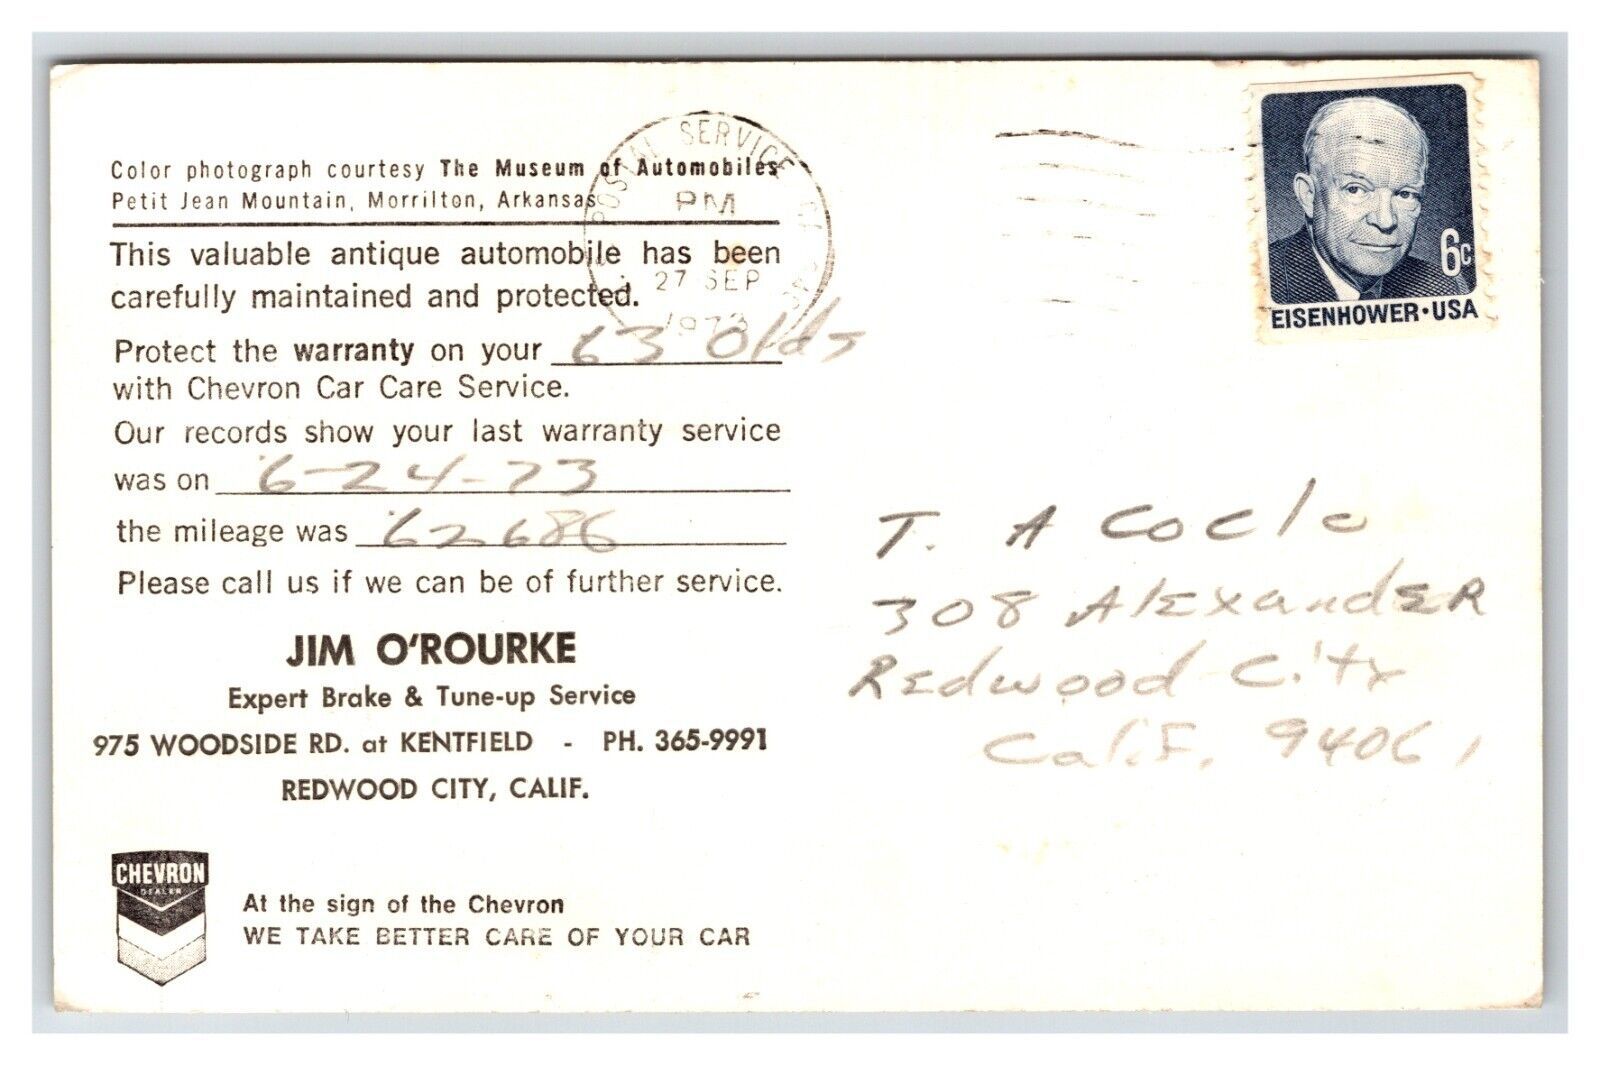 Color photograph courtesy The Museum of Automobiles
Petit Jean Mountain, Morrilton, Arkansas
This valuable antique automobile has been
carefully maintained and protected.
Protect the warranty on your 63 Olds
with Chevron Car Care Service.
Our records show your last warranty service
was on 6-24-73
the mileage was 62686
Please call us if we can be of further service.
JIM O'ROURKE
Expert Brake & Tune-up Service
975 WOODSIDE RD. at KENTFIELD - PH. 365-9991
REDWOOD CITY, CALIF.
CHEVRON
DEALER
At the sign of the Chevron
WE TAKE BETTER CARE OF YOUR CAR
POSTAL SERVICE
PM
27 SEP
1973
6c
EISENHOWER·USA
T. A
308 AlExandER
REdwood City
Calif. 94061